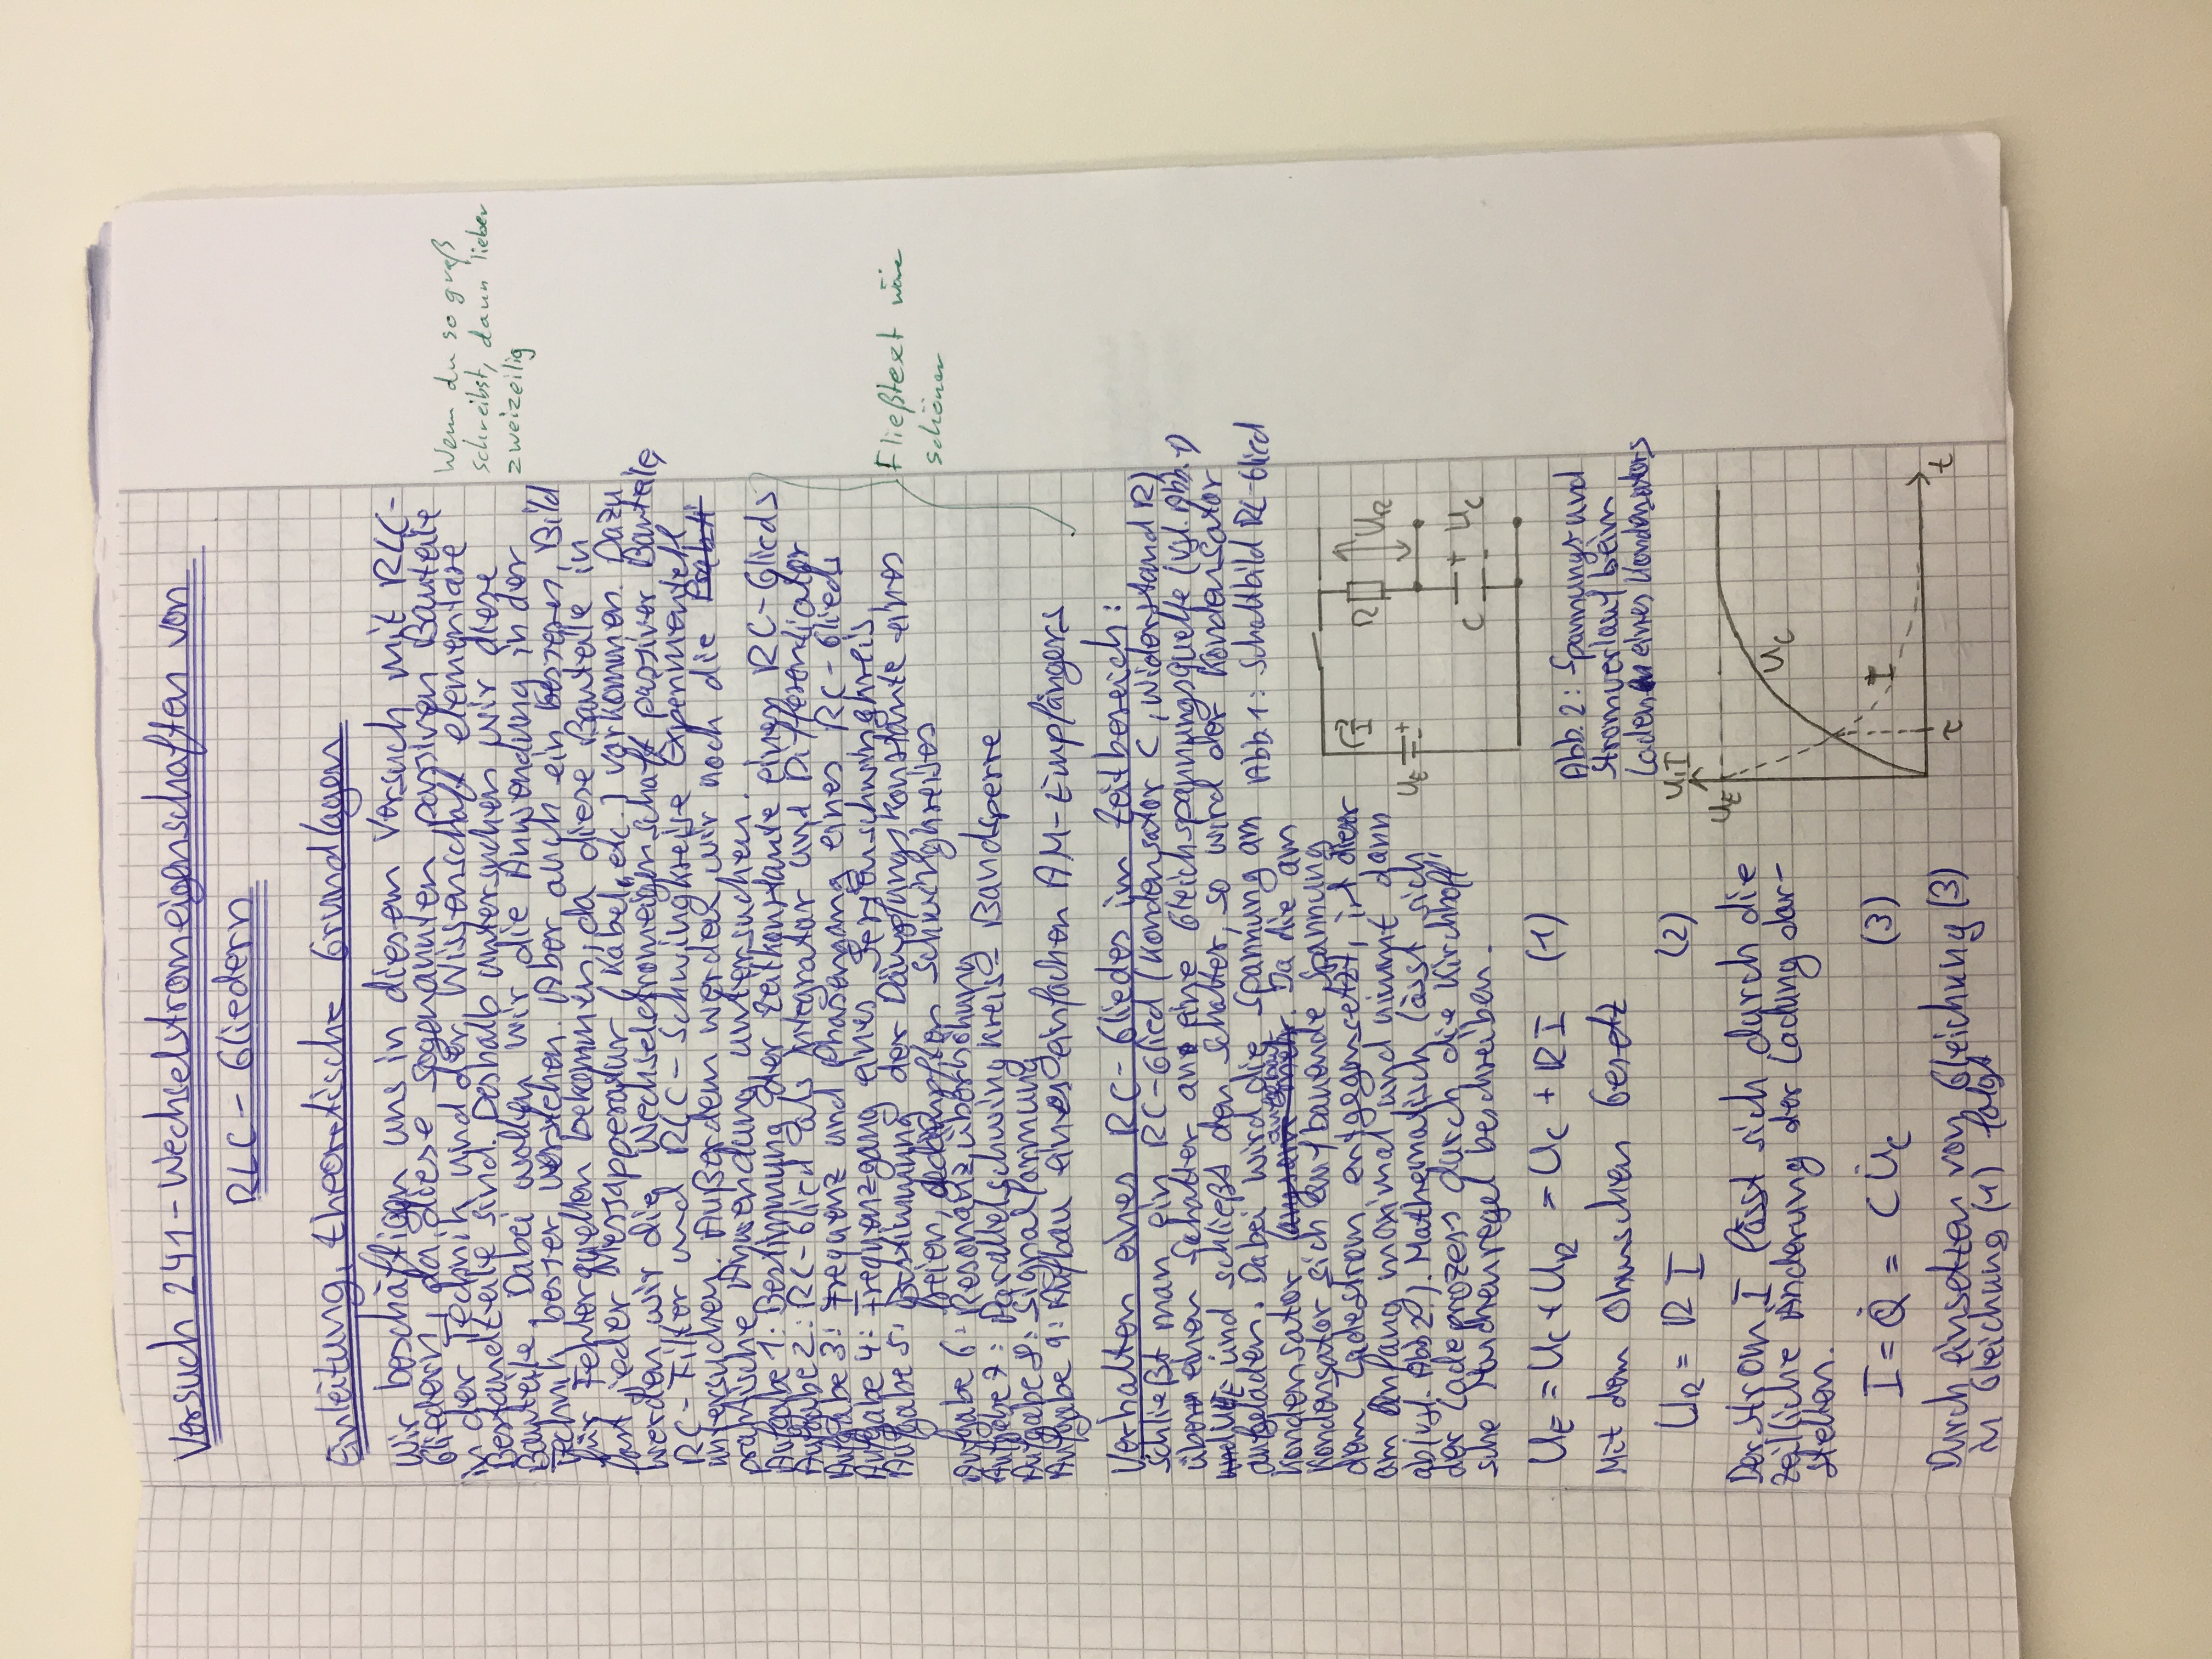 Versuch 241 - Wechselstromeigenschaften von
RLC - Gliedern
Einleitung, theoretische Grundlagen
Wir beschäftigen uns in diesem Versuch mit RLC-
Gliedern, da diese sogenannten passiven Bauteile
in der Technik und der Wissenschaft elementare
Bestandteile sind. Deshalb untersuchen wir diese
Bauteile. Dabei wollen wir die Anwendung in der
Technik besser verstehen. Aber auch ein besseres Bild
für Fehlerquellen bekommen, da diese Bauteile in
fast jeder Messapperatur (Kabel, etc.) vorkommen. Dazu
werden wir die Wechselstromeigenschaft passiver Bauteile,
RC-Filter und RLC-Schwingkreise Experimentell
untersuchen. Außerdem werden wir noch die
praktische Anwendung untersuchen.
Aufgabe 1: Bestimmung der Zeitkonstante eines RC-Glieds
Aufgabe 2: RC-Glied als Integrator und Differentiator
Aufgabe 3: Frequenz und Phasengang eines RC-Glieds
Aufgabe 4: Frequenzgang eines Serienschwingkreis
Aufgabe 5: Bestimmung der Dämpfungskonstante eines
freien, gedämpften Schwingkreises
Aufgabe 6: Resonanzüberhöhung
Aufgabe 7: Parallelschwingkreis - Bandsperre
Aufgabe 8: Signalformung
Aufgabe 9: Aufbau eines einfachen AM-Empfängers
Wenn du so groß
schreibst, dann lieber
zweizeilig
Fließtext wäre
schöner
Verhalten eines RC-Gliedes im Zeitbereich:
Schließt man ein RC-Glied (Kondensator C, Widerstand R)
über einen Schalter an eine Gleichspannungsquelle (vgl. Abb. 1)
und schließt den Schalter, so wird der Kondensator
aufgeladen. Dabei wird die Spannung am
Kondensator aufgebaut. Da die am
Kondensator sich aufbauende Spannung
dem Ladestrom entgegensetzt, ist dieser
am Anfang maximal und nimmt dann
ab (vgl. Abb 2.). Mathematisch lässt sich
der Ladeprozess durch die Kirchhoff'
sche Maschenregel beschreiben.
U_E = U_C + U_R = U_C + R I (1)
Mit dem Ohmschen Gesetz
U_R = R I (2)
Der Strom I lässt sich durch die
zeitliche Änderung der Ladung dar-
stellen.
I = Q̇ = C U̇_C (3)
Durch einsetzen von Gleichung (3)
in Gleichung (1) folgt
Abb. 1: Schaltbild RC-Glied
I
R
U_R
U_E
+
-
C
+
-
U_C
Abb. 2: Spannungs- und
Stromverlauf beim
Laden eines Kondensators
U, I
U_E
U_C
I
τ
t